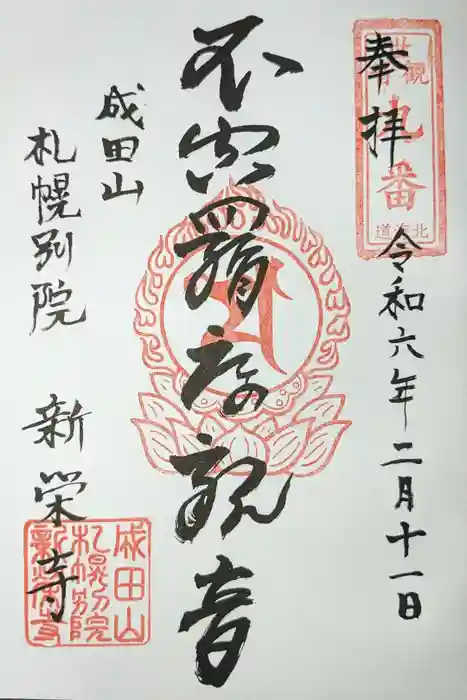 奉拝
令和六年二月十一日
不空羂索観音
成田山
札幌別院
新栄寺
九番
北海道
成田山
札幌別院
新栄寺